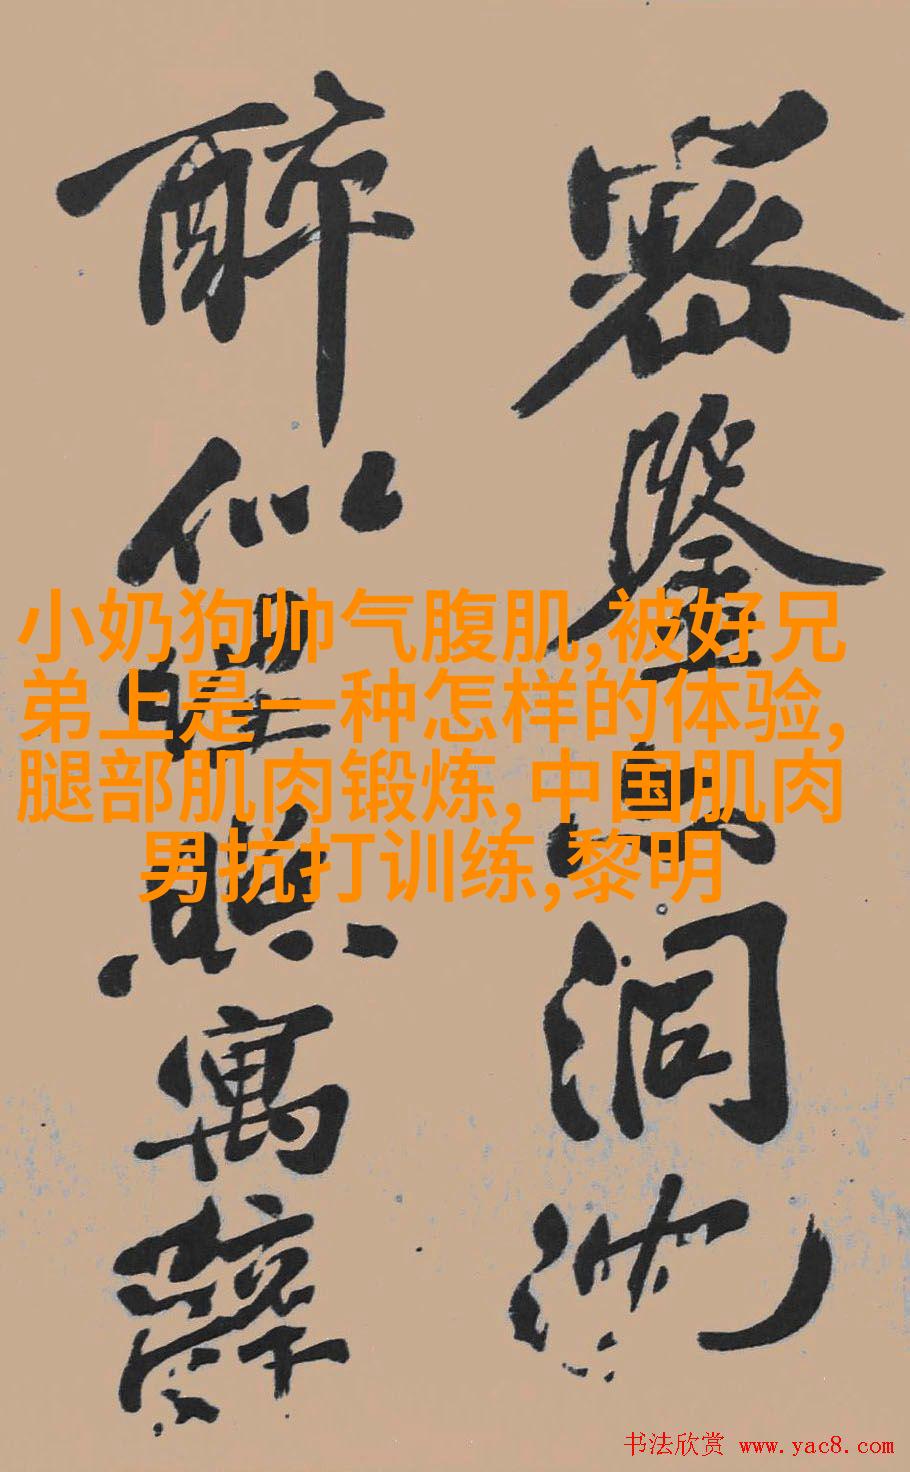 密鉴
洞沈
醉似
照寓辞
小奶狗帅气腹肌,被好兄
弟上是一种怎样的体验,
腿部肌肉锻炼,中国肌肉
男抗打训练,黎明
书法欣赏 www.yac8.com